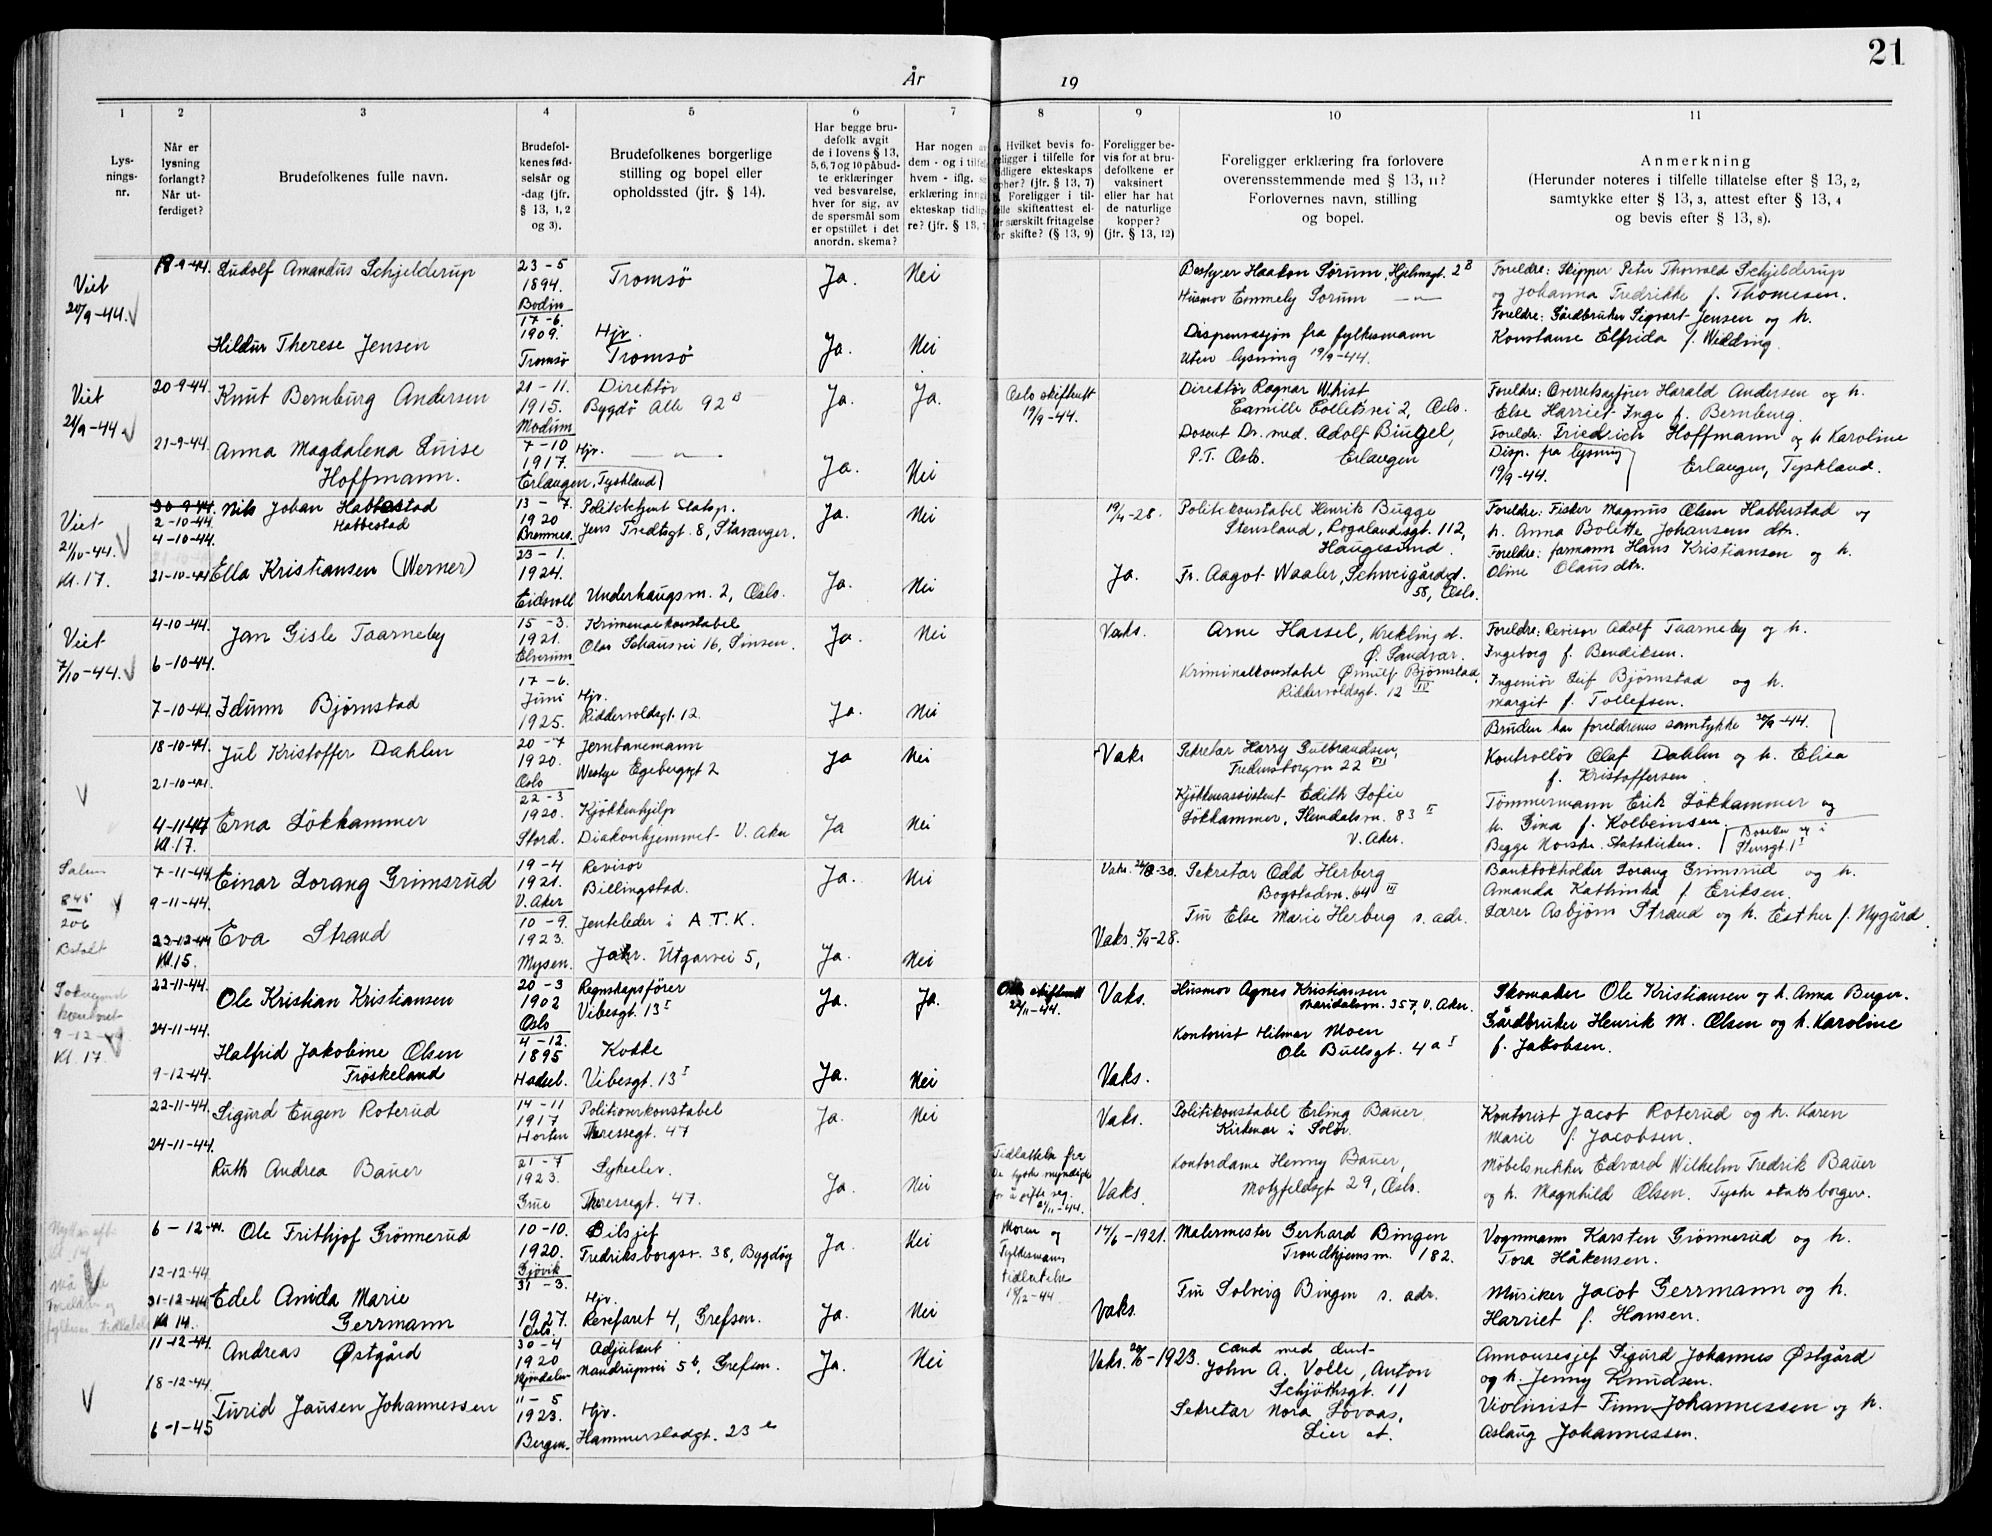 21
År 19
1 2 3 4 5 6 7 8 9 10 11
Lys-
nings-
nr.
Når er
lysning
forlangt?
Når ut-
ferdiget?
Brudefolkenes fulle navn.
Brudefol-
kenes fød-
selsår og
-dag (jfr.
§ 13, 1, 2
og 3).
Brudefolkenes borgerlige
stilling og bopel eller
opholdssted (jfr. § 14).
Har begge bru-
defolk avgit
de i lovens § 13,
5, 6, 7 og 10 påbud-
te erklæringer
ved besvarelse,
hver for sig, av
de spørsmål som
er opstillet i det
anordn. skema?
Har nogen
dem - og i tilf
hvem - iflg.
erklæring inn
ekteskap tidlig
re? (jfr. § 13,
Hvilket bevis fo-
religger i tilfelle for
tidligere ekteskaps
ophør? (jfr. § 13, 7)
Foreligger i til-
felle skifteattest el-
ler særskilt fritagelse
for skifte? (§ 13, 9)
Foreligger be-
vis for at bru-
defolkene er
vaksinert
eller har hat
de naturlige
kopper?
(jfr. § 13, 12)
Foreligger erklæring fra forlovere
overensstemmende med § 13, 11?
Forlovernes navn, stilling
og bopel.
Anmerkning
(Herunder noteres i tilfelle tillatelse efter § 13, 2,
samtykke efter § 13, 3, attest efter § 13, 4
og bevis efter § 13, 8).
Viet
20/9-44.
18-9-44.
Ludolf Amandus Schjelderup
23-5
1894.
Bodin
Tromsø
Ja.
Nei
Bestyrer Haakon Sörum, Hjelmsgt. 2 B
Husmor Emmely Sorum —"—
Foreldre: Skipper Peter Thorvald Schjelderup
og Johanna Fredrikke f. Thomesen.
Hildur Therese Jensen
17-6.
1909.
Tromsø
Hjv.
Tromsö
Ja.
Nei
Dispensasjon fra fylkesmann
Uten lysning 19/9-44.
Foreldre: Gårdbruker Sigvart Jensen og h.
Konstanse Elfrida f. Wedding.
Viet
21/9-44
20-9-44.
Knut Bernburg Andersen
21-11.
1915.
Modum
Direktör
Bygdö Alle 92 B
Ja.
Ja.
Oslo skifterett
19/9-44.
Direktör Ragnar Whist
Camille Colletsvei 2, Oslo.
Foreldre: Overretssagförer Harald Andersen og h.
Else Harriet Inge f. Bernburg.
21-9-44.
Anna Magdalena Luise
Hoffmann.
7-10
1917.
Erlangen, Tyskland
Hjv. —"—
Ja.
Nei
Dosent Dr. med. Adolf Bingel,
P.T. Oslo. Erlangen
Foreldr: Friedrich Hoffmann og h Karoline
Disp. fra lysning
19/9-44.
Erlangen, Tyskland.
Viet
21/10-44.
Kl. 17.
30-9-44.
2-10-44.
4-10-44.
Nils Johan Habbestad
Habbestad
13-7
1920
Bremnes.
Politibetjent Statsp.
Jens Tredtsgt. 8, Stavanger.
Ja.
Nei
19/4-28.
Politikonstabel Henrik Bugge
Stensland, Rogalandsgt. 112,
Haugesund.
Foreldre: Fisker Magnus Olsen Habbestad og
h. Anna Bolette Johansens dtr.
21-10-44
Ella Kristiansen (Werner)
23-1.
1924.
Eidsvoll
Underhaugsvn. 2, Oslo.
Ja.
Nei
Ja.
Fr. Aagot Waaler, Schweigårdsgt.
58, Oslo.
Foreldre: farmann Hans Kristiansen og h.
Oline Olausdtr.
Viet
7/10-44.
4-10-44.
6-10-44.
Jan Gisle Taarneby
15-3.
1921.
Elverum
Kriminalkonstabel
Olav Schausvei 16, Sinsen.
Ja.
Nei
Vaks.
Arne Hassel, Krekling st.
Ø. Sandvær.
Foreldre: Revisor Adolf Taarneby og h.
Ingeborg f. Bendiksen.
7-10-44.
Idunn Bjørnstad
17-6.
Juni
1925.
Hjv.
Riddervoldsgt. 12.
Ja.
Nei
Kriminalkonstabel Ørnulf Bjørnstad,
Riddervoldsgt. 12 IV
Ingeniör Leif Bjørnstad og h.
Margit f. Tollefsen.
Bruden har foreldrenes samtykke 30/9-44.
18-10-44.
21-10-44.
Jul Kristoffer Dahlen
20-7
1920.
Oslo
Jernbanemann
Westye Egebergsgt 2
Ja
Nei
Vaks
Sekretær Harry Gulbrandsen,
Fredensborgvn 22 VII
Kontrollör Olaf Dahlen og h. Elisa
f. Kristoffersen
4-11-44
Kl. 17.
Erna Lökhammer
22-3
1920.
Stord.
Kjökkenhjelp
Diakonhjemmet V. Aker
Ja
Nei
Kjökkenassistent Edith Sofie
Lökhammer, Slemdalsvn. 83 II
V. Aker.
Tömmermann Erik Lökhammer og
h. Gina f. Kolbeinsen.
Begge Norske Statskirken.
Bosetter sig i
Stensgt. 1 I
845
206
Betalt
7-11-44.
9-11-44.
Einar Lorang Grimsrud
19-4
1921.
V. Aker
Revisor
Billingstad.
Ja.
Nei
Vaks. 24/8-30.
Sekretær Odd Herberg
Bogstadvn. 64 III
Bankbokholder Lorang Grimsrud og h.
Amanda Kathinka f. Eriksen.
23-12-44
Kl. 15.
Eva Strand
10-9.
1923.
Mysen.
Jenteleder i A.T.K.
Jahr. Utgårvei 5,
Ja.
Nei
Vaks. 5/9-28.
Fru Else Marie Herberg s. adr.
Lærer Asbjørn Strand og h. Esther f. Nygård.
9-12-44
Kl. 17.
22-11-44.
24-11-44.
Ole Kristian Kristiansen
20-3
1902
Oslo
Regnskapsförer
Vibesgt. 13 I
Ja.
Ja.
Oslo skifterett
22/11-44.
Vaks.
Husmor Agnes Kristiansen
Maridalsvn. 357, V. Aker.
Skomaker Ole Kristiansen og h. Anna Buger.
9-12-44.
Halfrid Jakobine Olsen
Fröskeland
4-12.
1895
Hadsel.
Kokke
Vibesgt. 13 I
Ja.
Nei
Vaks.
Kontorist Hilmar Moen
Ole Bullsgt. 4a I
Gårdbruker Henrik M. Olsen og h. Karoline
f. Jakobsen.
22-11-44.
24-11-44.
Sigurd Eugen Roterud
14-11
1917
Horten
Politioverkonstabel
Theressegt. 47
Ja.
Nei
Vaks.
Politikonstabel Erling Bauer
Kirkenær i Solör.
Kontorist Jacob Roterud og h. Karen
Marie f. Jacobsen.
Ruth Andrea Bauer
21-7
1923.
Grue
Sykeelev.
Theressegt. 47.
Ja.
Nei
Tidlatelse fra
De tyske myndigh.
for å gifte seg.
21/11-44.
Vaks.
Kontordame Henny Bauer,
Motzfeldsgt 29, Oslo.
Möbelsnekker Edvard Wilhelm Fredrik Bauer
og h. Magnhild Olsen. Tyske statsborgere.
6-12-44.
12-12-44
Ole Frithjof Grönnerud
10-10.
1920.
Gjövik
Bilsjef
Fredriksborgvn. 38, Bygdöy
Ja.
Nei
Moren og
Fylkesmans
tidlatelse
18/12-44.
14/6-1921.
Malermester Gerhard Bingen
Trondhjemsvn. 182.
Vognmann Karsten Grönnerud og h.
Tora Håkensen.
31-12-44
Kl 14.
Edel Anida Marie
Gerrmann
31-3.
1927.
Oslo.
Hjv.
Revefaret 4, Grefsen.
Ja.
Nei
Vaks.
Fru Solveig Bingen s. adr.
Musiker Jacob Gerrmann og h.
Harriet f. Hansen.
11-12-44.
18-12-44.
Andreas Østgård
30-4
1920
Adjutant
Nandrupsvei 5 b, Grefsen.
Ja.
Nei
Vaks. 20/6-1923.
Cand med dent
John A. Volle, Anton
Schjöthsgt. 11
Annonsesjef Sigurd Johannes Østgård
og h. Jenny Knudsen.
6-1-45
Turid Jansen Johannessen
11-5
1923.
Bergen.
Hjv.
Hammerstadgt. 23 e
Sekretær Nora Lovaas,
Lier st.
Violinist Finn Johannessen og h.
Aslaug Johannessen.